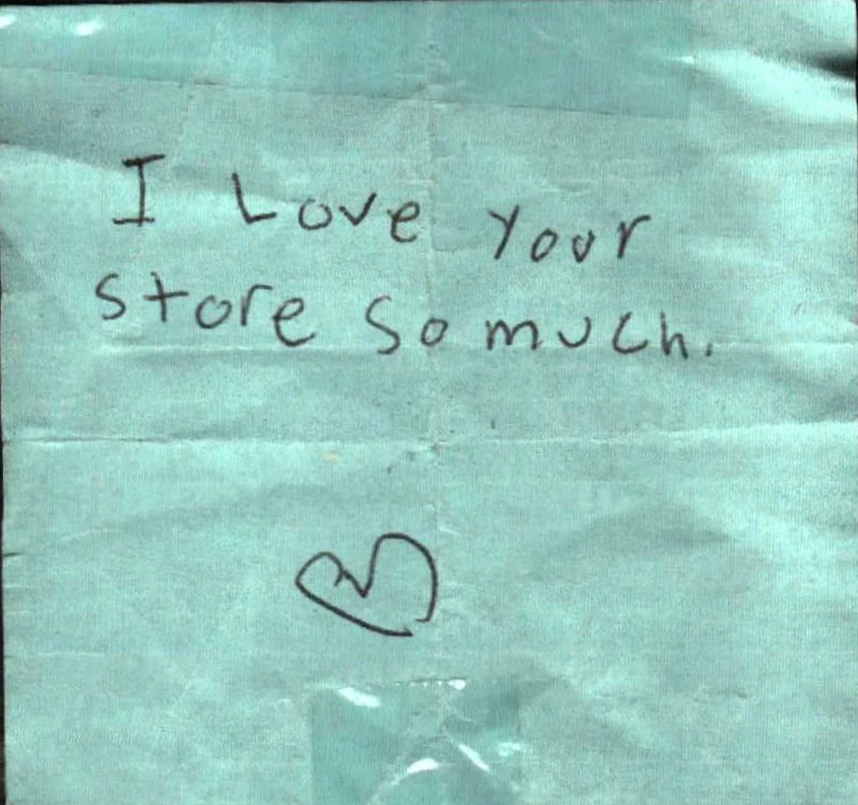 I Love Your
Store So much.